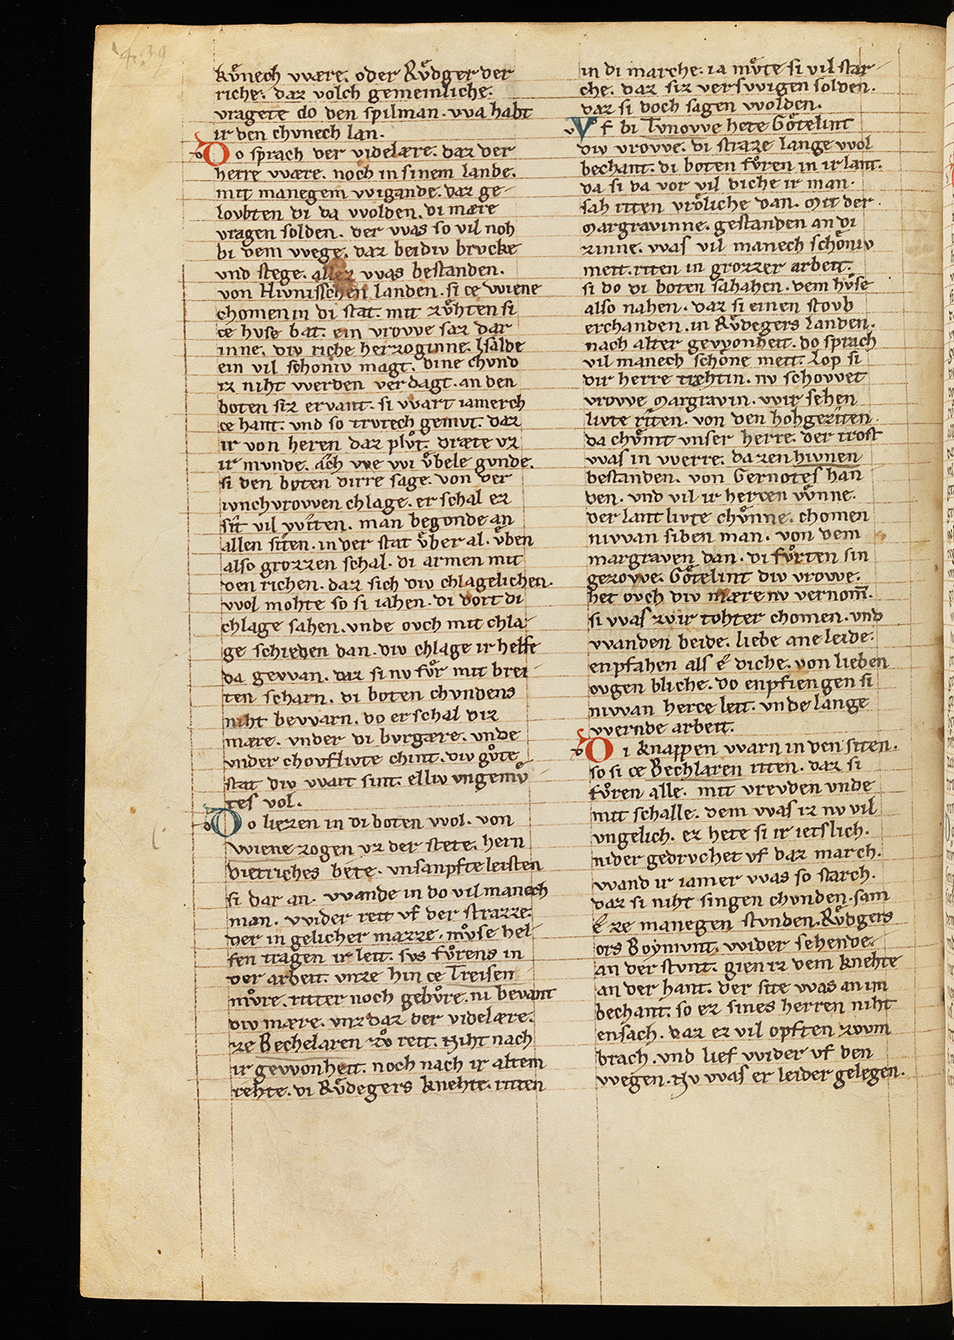 kuͦnech vvære. oder Ruͤdger der
riche. daz volch gemeinliche.
vragete do den spilman. vva habt
ir den chvnech lan.
Do sprach der videlære. daz der
herre vvære. noch in sinem lande.
mit manegem vvigande. daz ge-
lovbten di da vvolden. di mære
vragen solden. der vvas so vil noh
bi dem vvege. daz beidiv brvcke
vnd stege. allez vvas bestanden.
von Hivnisschen landen. si ce vviene
chomen in di stat. mit zvͦhten si
ce hvse bat. ein vrovve saz dar
inne. div riche herzoginne. Isalde
ein vil schoniv magt. dine chvnd
iz niht vverden verdagt. an den
boten siz ervant. si vvart iamerch
ce hant. vnd so trvrech gemvt. daz
ir von heren daz plvͦt. dræte vz
ir mvnde. ach vve vvi vͦbele gvnde.
si den boten dirre sage. von der
ivnchvrovven chlage. er schal ez
sit vil vviten. man begonde an
allen siten. in der stat vͦber al. vͦben
also grozzen schal. di armen mit
den richen. daz sich div chlagelichen.
vvol mohte so si iahen. di dort di
chlage sahen. vnde ovch mit chla-
ge schieden dan. div chlage ir helfe
da gevvan. daz si nv fvͦr mit brei-
ten scharn. di boten chvndens
niht bevvarn. do erschal diz
mære. vnder di bvrgære. vnde
vnder chovflivte chint. div gvͦte
stat div vvart sint. elliv vngemvͦ-
tes vol.
Do liezen in di boten vvol. von
vviene zogen vz der stete. hern
dietriches bete. vnsanpfte leisten
si dar an. vvande in do vil manech
man. vvider reit vf der strazze.
der in gelicher mazze. mvͦse hel-
fen tragen ir leit. svs fvͦrens in
der arbeit. vnze hin ce Treisen
mvͦre. ritter noch gebvͦre. ni bevant
div mære. vnz daz der videlære.
ze Bechelaren zvͦ reit. Niht nach
ir gevvonheit. noch nach ir altem
rehte. di Rvͦdegers knehte. ritten
in di marche. ia mvͦte si vil star-
che. daz siz versvvigen solden.
daz si doch sagen vvolden.
Vf bi Tvnovve hete Gotelint
div vrovve. di straze lange vvol
bechant. di boten fvͦren in ir lant.
da si da vor vil diche ir man.
sah riten vroͤliche dan. mit der
margravinne. gestanden an di
zinne. vvas vil manech schoniv
meit. riten in grozzer arbeit.
si do di boten sahahen. dem hvͦse
also nahen. daz si einen stovb
erchanden. in Rvͦdegers landen.
nach alter gevvonheit. do sprach
vil manech schone meit. Lop si
dir herre trehtin. nv schovvet
vrovve margravin. vvir sehen
livte riten. von den hohgeziten.
da chvͦmt vnser herre. der trost
vvas in vverre. da zen hivnen
bestanden. von Gernotes han-
den. vnd vil ir herzen vvͦnne.
der lant livte chvͦnne. chomen
nivvan siben man. von dem
margraven dan. di fvͦrten sin
gezovve. Gotelint div vrovve.
het ovch div mære nv vernom̄.
si vvas zvir tohter chomen. vnd
vvanden beide. liebe ane leide.
enpfahen als e diche. von lieben
ovgen bliche. do enpfiengen si
nivvan herce leit. vnde lange
vvernde arbeit.
Di knappen vvarn in den siten.
so si ce Bechlaren riten. daz si
fvͦren alle. mit vrevden vnde
mit schalle. dem vvas iz nv vil
vngelich. ez hete si ir ietslich.
nider gedrvchet vf daz march.
vvand ir iamer vvas so starch.
daz si niht singen chvnden. sam
e ze manegen stvnden. Rvͦdgers
ors Boymvnt. vvider sehende.
an der stvnt. gien iz dem knehte
an der hant. der site vvas an im
bechant. so ez sines herren niht
ensach. daz ez vil opften zovm
brach. vnd lief vvider vf den
vvegen. Nv vvas er leider gelegen.